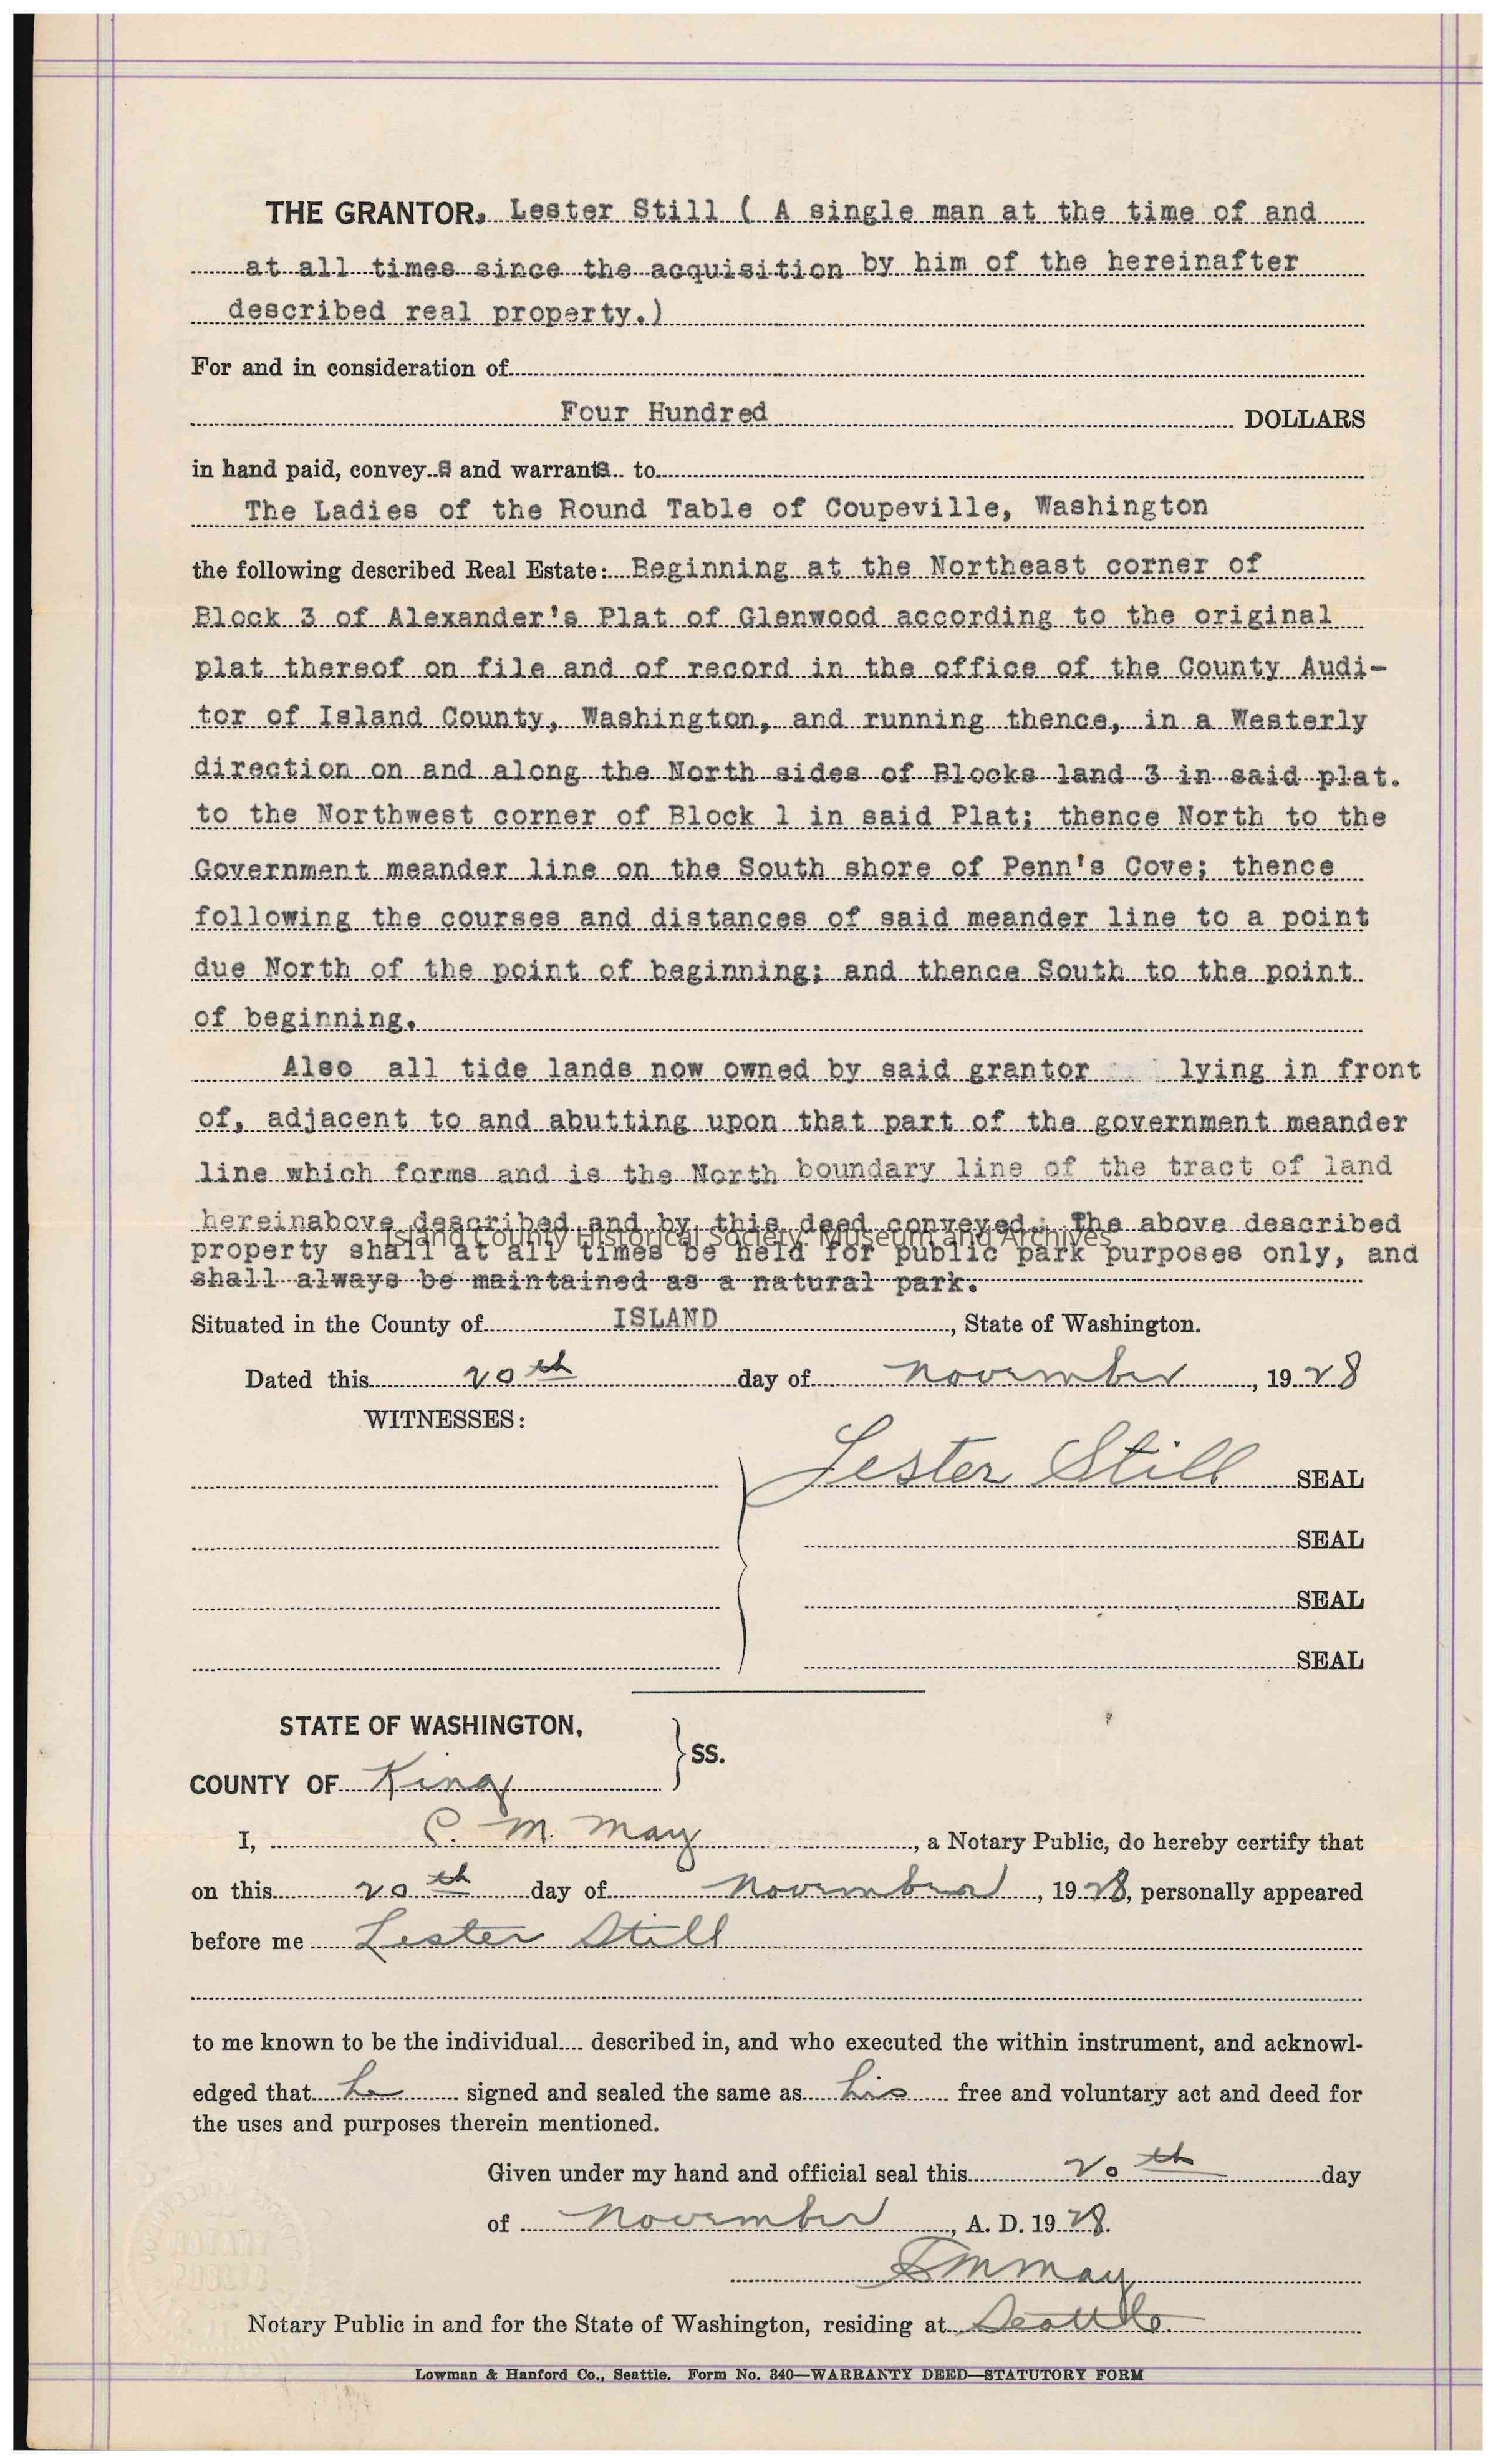 THE GRANTOR, Lester Still ( A single man at the time of and
at all times since the acquisition by him of the hereinafter
described real property.)
For and in consideration of
Four Hundred DOLLARS
in hand paid, convey s and warrants to
The Ladies of the Round Table of Coupeville, Washington
the following described Real Estate: Beginning at the Northeast corner of
Block 3 of Alexander's Plat of Glenwood according to the original
plat thereof on file and of record in the office of the County Audi-
tor of Island County, Washington, and running thence, in a Westerly
direction on and along the North sides of Blocks 1and 3 in said plat.
to the Northwest corner of Block 1 in said Plat; thence North to the
Government meander line on the South shore of Penn's Cove; thence
following the courses and distances of said meander line to a point
due North of the point of beginning; and thence South to the point
of beginning.
Also all tide lands now owned by said grantor lying in front
of, adjacent to and abutting upon that part of the government meander
line which forms and is the North boundary line of the tract of land
hereinabove described and by this deed conveyed. The above described
Island County Historical Society: Museum and Archives
property shall at all times be held for public park purposes only, and
shall always be maintained as a natural park.
Situated in the County of ISLAND, State of Washington.
Dated this 20th day of November, 1928
WITNESSES:
Lester Still SEAL
SEAL
SEAL
SEAL
STATE OF WASHINGTON,
SS.
COUNTY OF King
I, C. M. May, a Notary Public, do hereby certify that
on this 20th day of November, 1928, personally appeared
before me Lester Still
to me known to be the individual.... described in, and who executed the within instrument, and acknowl-
edged that he signed and sealed the same as his free and voluntary act and deed for
the uses and purposes therein mentioned.
Given under my hand and official seal this 20th day
of November, A. D. 1928.
CM May
Notary Public in and for the State of Washington, residing at Seattle.
NOTARY
PUBLIC
Lowman & Hanford Co., Seattle. Form No. 340—WARRANTY DEED—STATUTORY FORM